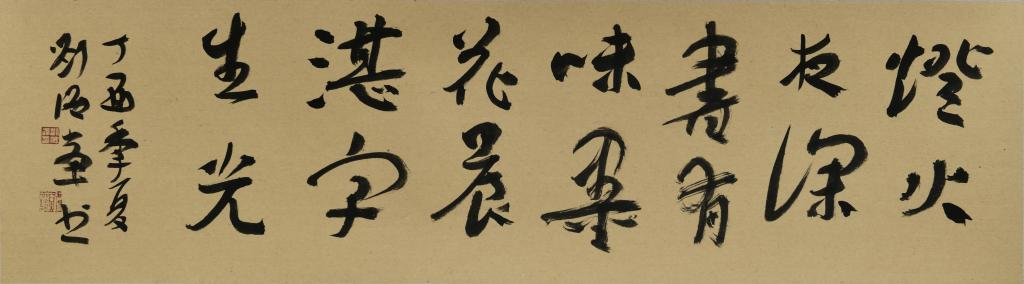 燈火
夜深
書有
味墨
花晨
湛字
生光
丁酉季夏
劉书